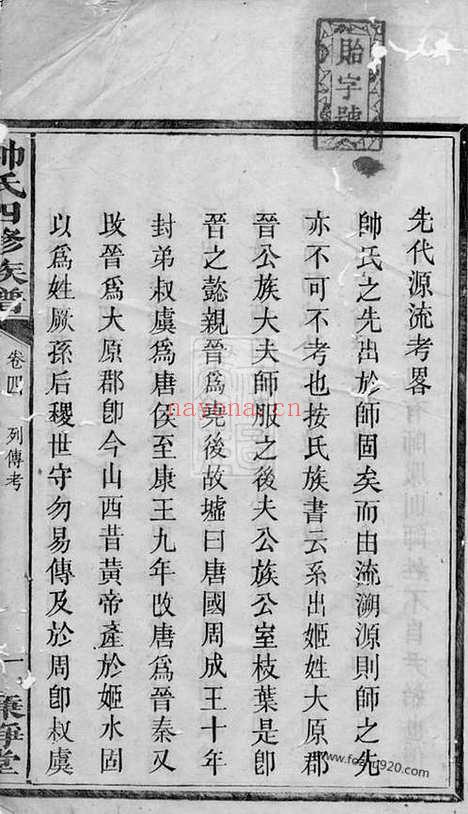 貽字號
先代源流考畧
帥氏之先出於師固矣而由流溯源則師之先
亦不可不考也按氏族書云系出姬姓大原郡
晉公族大夫師服之後夫公族公室枝葉是卽
晉之懿親晉爲堯後故墟曰唐國周成王十年
封弟叔虞爲唐侯至康王九年改唐爲晉秦又
改晉爲大原郡卽今山西昔黃帝產於姬水固
以爲姓厥孫后稷世守勿易傳及於周卽叔虞
帥氏四修族譜
卷四
列傳考
一
nayona.cn
www.fengtu920.com